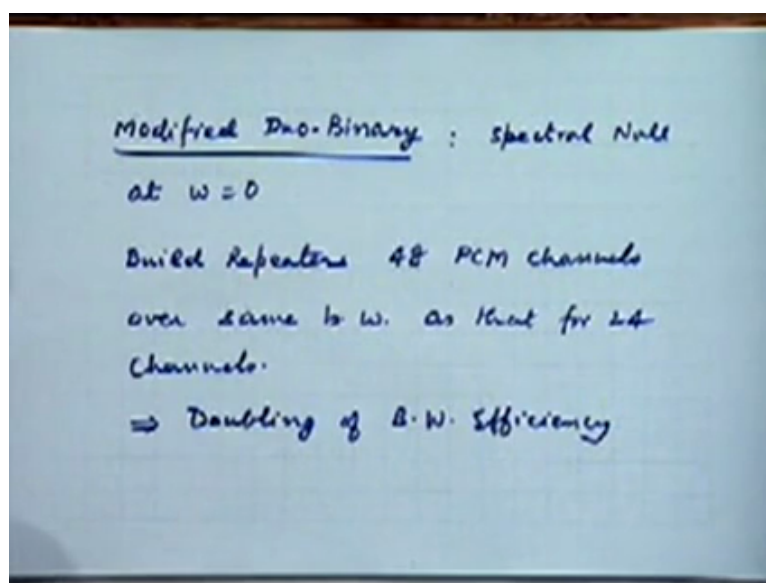 Modified Duo-Binary : Spectral Null
at w = 0
Build Repeaters 48 PCM Channels
over same b w. as that for 24
Channels.
⇒ Doubling of B.W. Efficiency